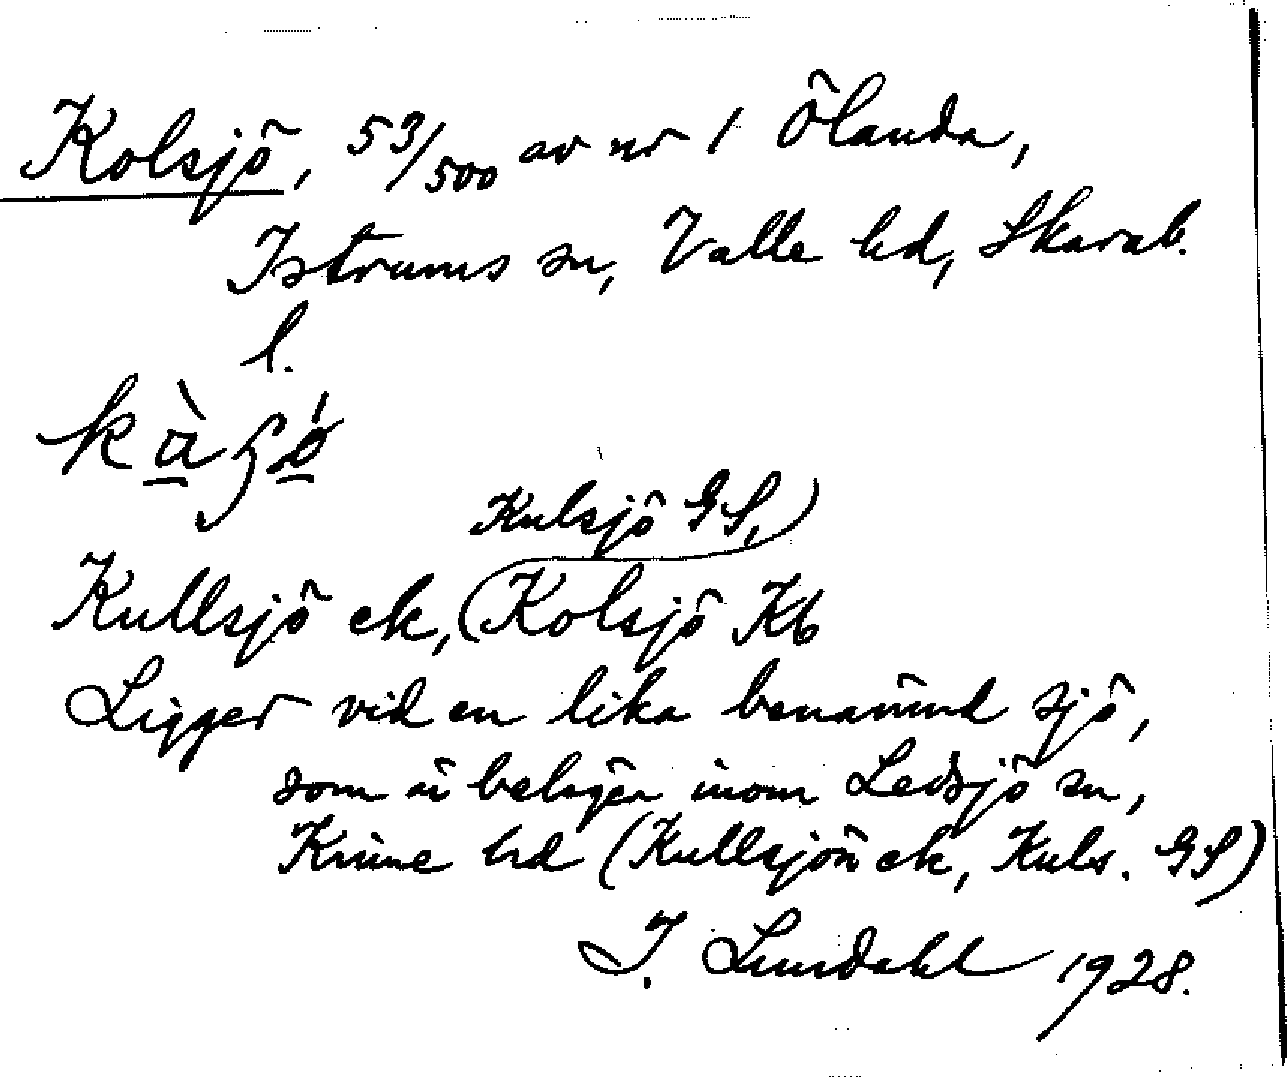 Kolsjö, 53/500 av nr 1 Ölanda,
Istrums sn, Valle hd, Skarab.
l.
Kulsjö GS,
Kullsjö ek, (Kolsjö Kb
Ligger vid en lika benämnd sjö,
som är belägen inom Ledsjö sn,
Kinne hd (Kullsjön ek, Kuls. GS)
I. Lundahl 1928.